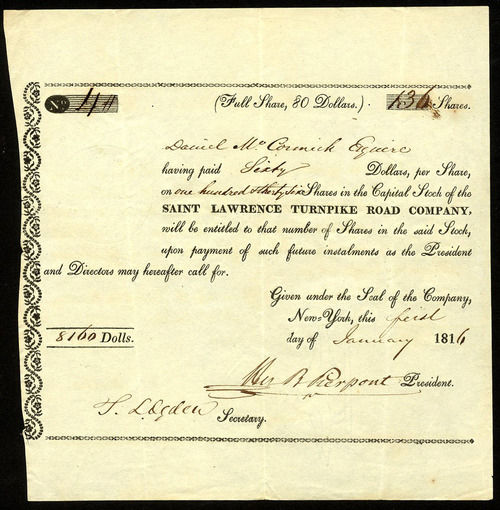 No. 44 (Full Share, 80 Dollars.) 136 Shares.
Daniel Mc Cormick Esquire
having paid Sixty Dollars, per Share,
on one hundred & thirty six Shares in the Capital Stock of the
SAINT LAWRENCE TURNPIKE ROAD COMPANY,
will be entitled to that number of Shares in the said Stock,
upon payment of such future instalments as the President
and Directors may hereafter call for.
Given under the Seal of the Company,
New-York, this first
8160 Dolls. day of January 1816
Hez B Pierpont President.
T. L. Ogden Secretary.